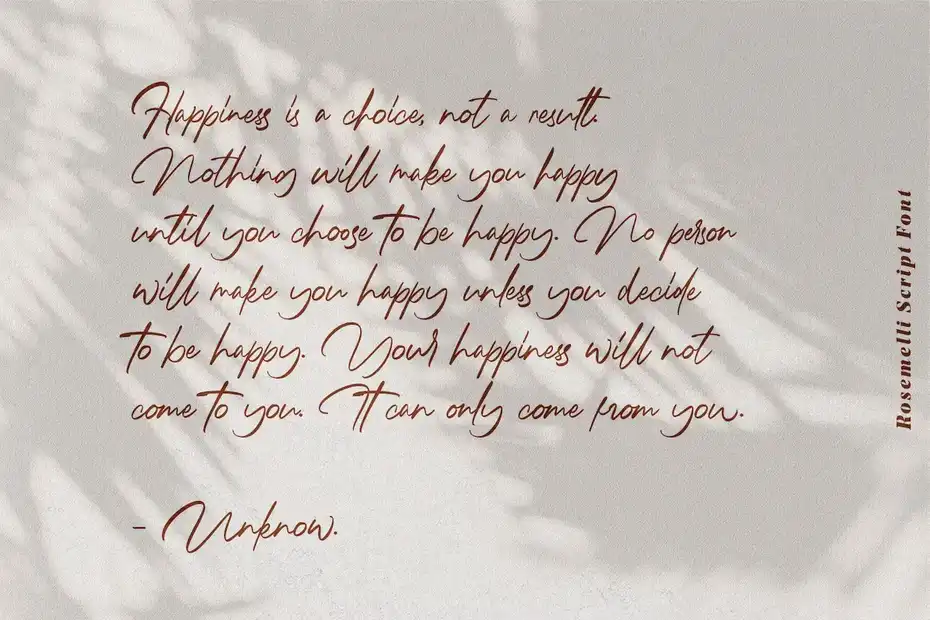 Happiness is a choice, not a result.
Nothing will make you happy
until you choose to be happy. No person
will make you happy unless you decide
to be happy. Your happiness will not
come to you. It can only come from you.
- Unknow.
Rosemelli Script Font